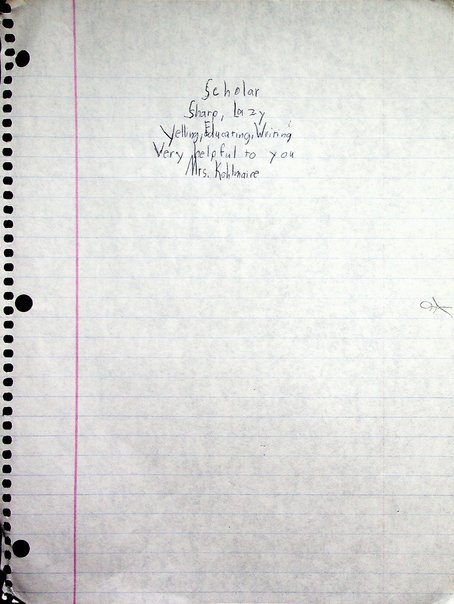 Scholar
Sharp, Lazy
Yelling, Educating, Writing
Very helpful to you
Mrs. Kohlmaire